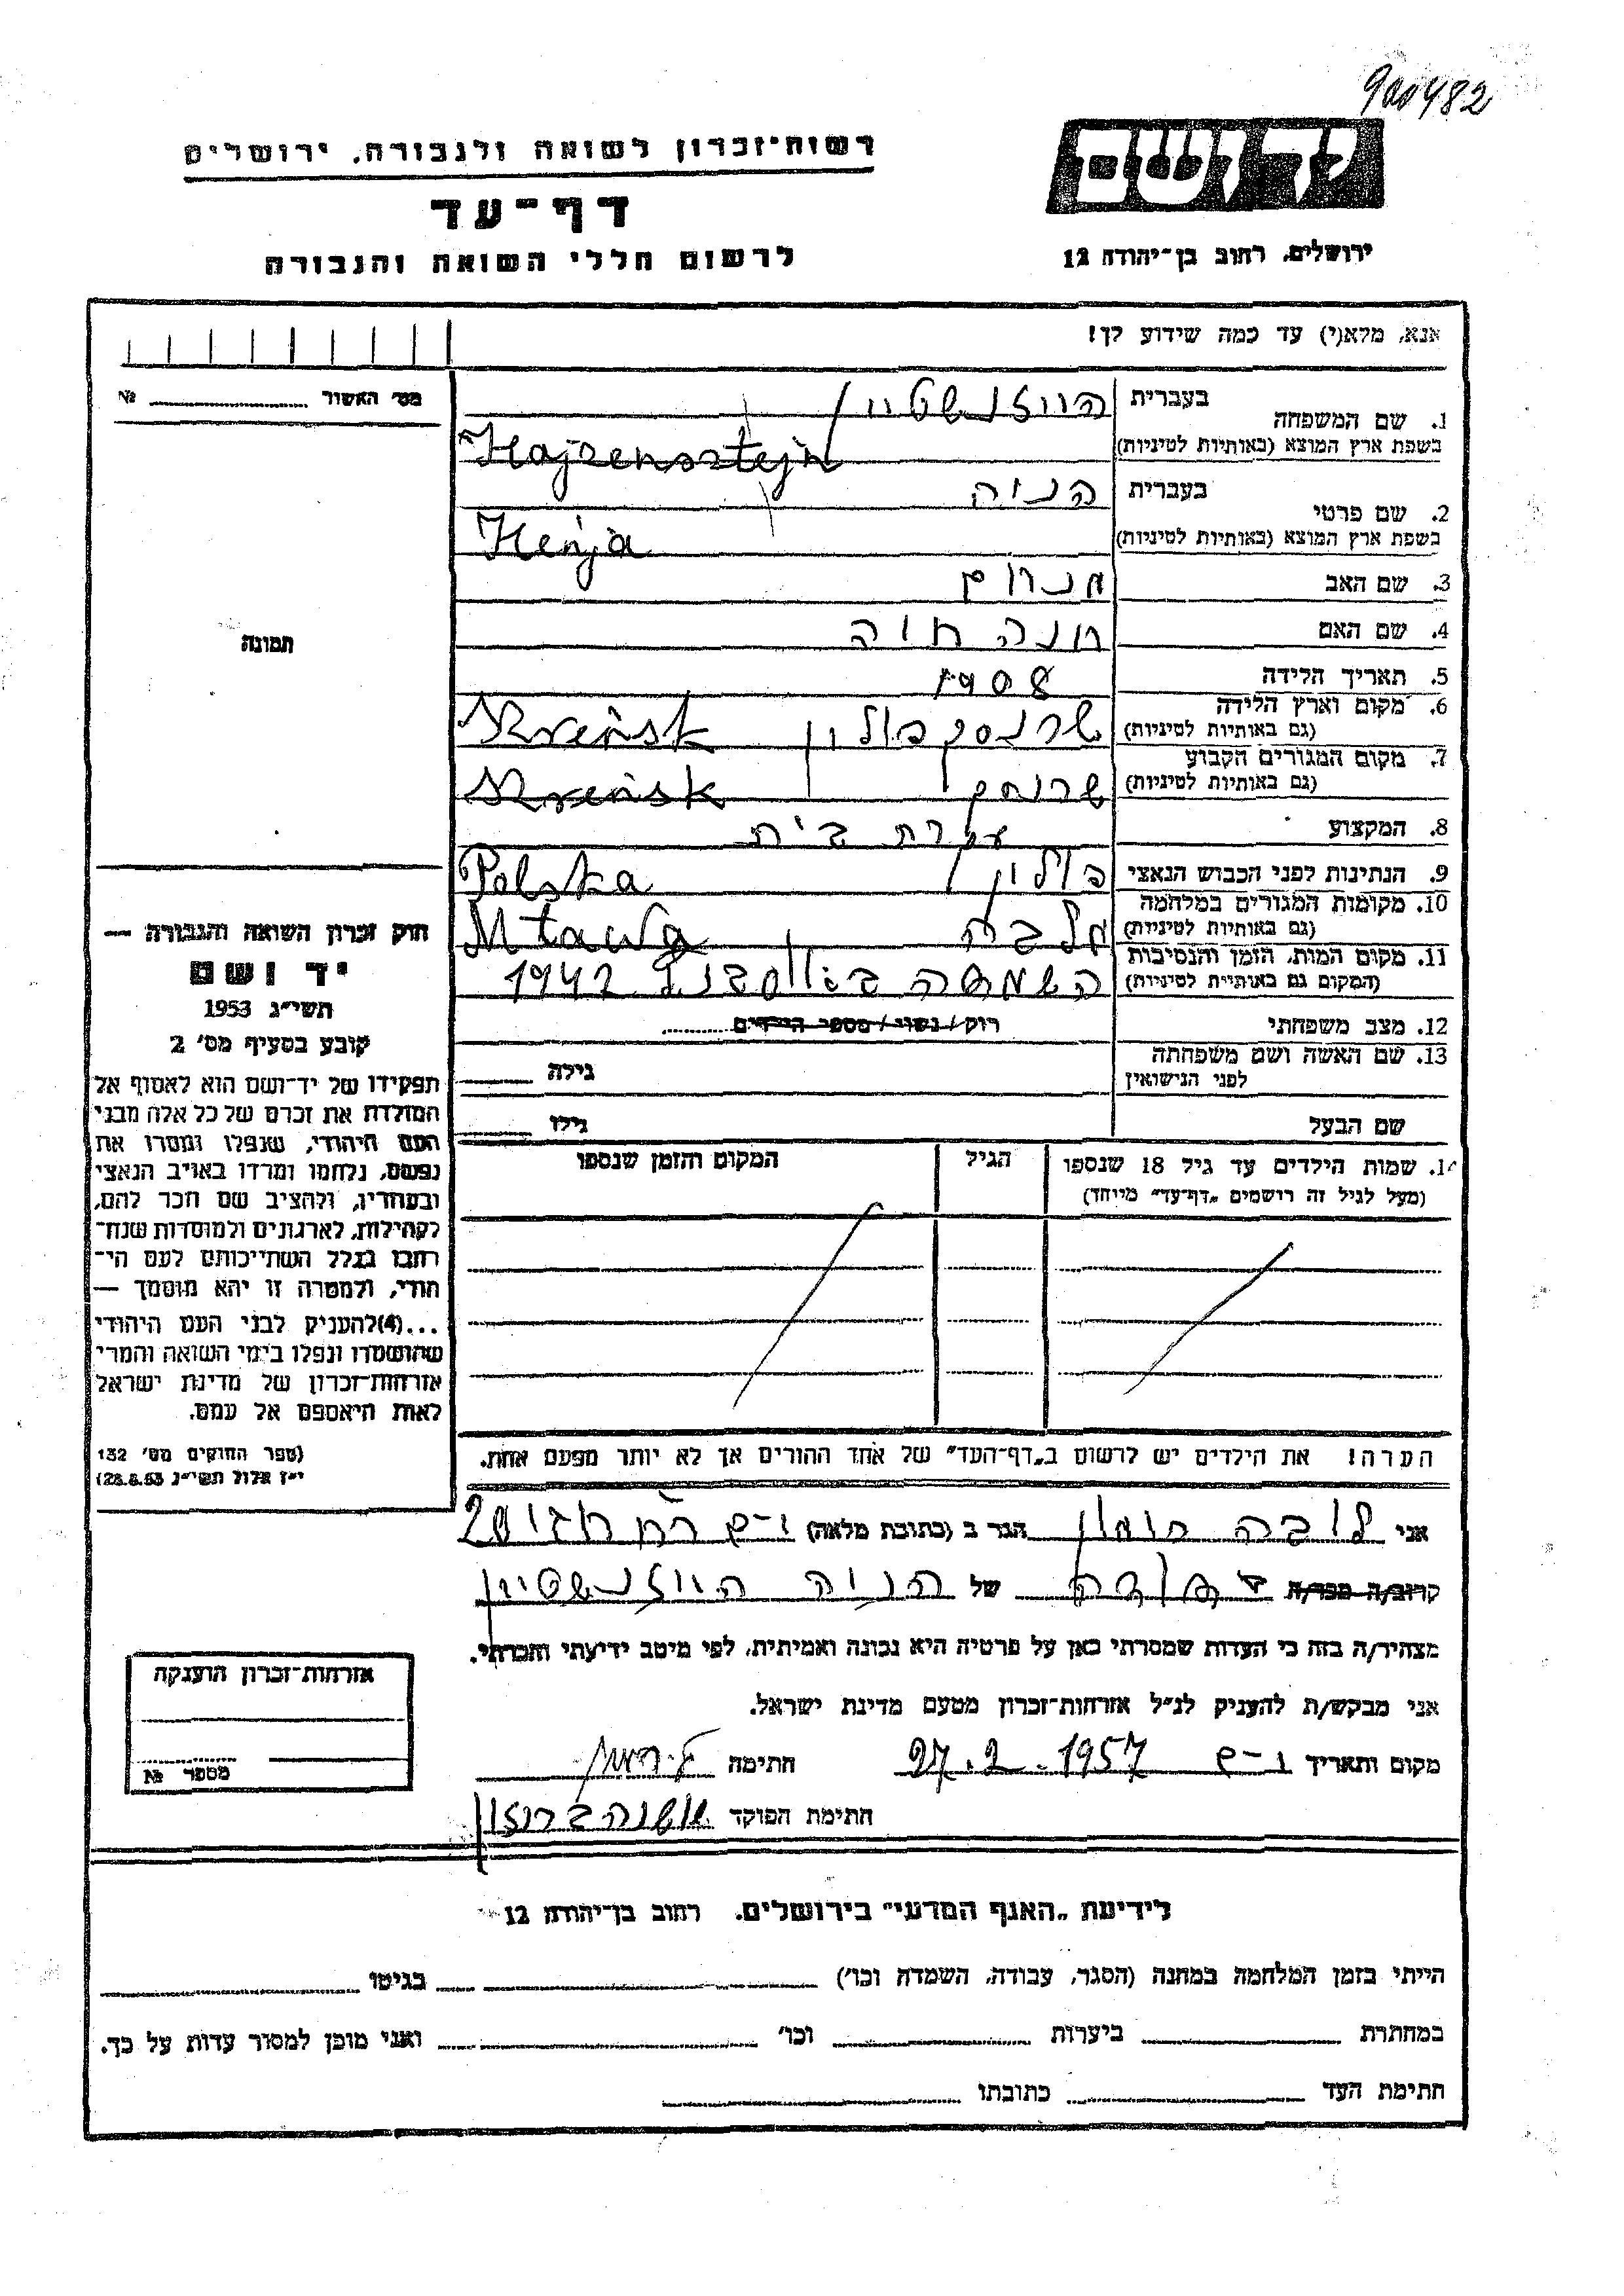 900482
ידושם
ירושלים, רחוב בן־יהודה 12
רשות־זכרון לשואה ולגבורה, ירושלים
דף־עד
לרשום חללי השואה והגבורה
אנא, מלא(י) עד כמה שידוע לך!
מס׳ האשור № 
1. שם המשפחה בעברית היוזנשטיין
בשפת ארץ המוצא (באותיות לטיניות) Hajzensztejn
2. שם פרטי בעברית הניה
בשפת ארץ המוצא (באותיות לטיניות) Henja
3. שם האב מנחם
4. שם האם חנה חיה
5. תאריך הלידה 1908
6. מקום וארץ הלידה (גם באותיות לטיניות) שרנסק פולין Szreńsk
7. מקום המגורים הקבוע (גם באותיות לטיניות) שרנסק Szreńsk
8. המקצוע עקרת בית
9. הנתינות לפני הכבוש הנאצי פולין Polska
10. מקומות המגורים במלחמה (גם באותיות לטיניות) מלבה Mława
11. מקום המות, הזמן והנסיבות (המקום גם באותיות לטיניות) השמדה 1942
12. מצב משפחתי רוק/נשוי/מספר הילדים
13. שם האשה ושם משפחתה לפני הנישואין גילה
שם הבעל גילו
14. שמות הילדים עד גיל 18 שנספו הגיל המקום והזמן שנספו
(מעל לגיל זה רושמים „דף־עד" מיוחד)
הערה! את הילדים יש לרשום ב„דף־העד" של אחד ההורים אך לא יותר מפעם אחת.
תמונה
חוק זכרון השואה והגבורה —
יד ושם
תשי״ג 1953
קובע בסעיף מס׳ 2
תפקידו של יד־ושם הוא לאסוף אל
המולדת את זכרם של כל אלה מבני
העם היהודי, שנפלו ומסרו את
נפשם, נלחמו ומרדו באויב הנאצי
ובעוזריו, ולהציב שם וזכר להם,
לקהילות, לארגונים ולמוסדות שנח־
רבו בגלל השתייכותם לעם הי־
הודי, ולמטרה זו יהא מוסמך —
...(4) להעניק לבני העם היהודי
שהושמדו ונפלו בימי השואה והמרי
אזרחות־זכרון של מדינת ישראל
לאות היאספם אל עמם.
(ספר החוקים מס׳ 132
י״ז אלול תשי״ג 28.8.53)
אני לובה הגר ב (כתובת מלאה) י-ם 20
קרוב/ה מכר/ה של הניה היוזנשטיין
מצהיר/ה בזה כי העדות שמסרתי כאן על פרטיה היא נכונה ואמיתית, לפי מיטב ידיעתי והכרתי.
אני מבקש/ת להעניק לנ״ל אזרחות־זכרון מטעם מדינת ישראל.
מקום ותאריך י-ם 27.2.1957 חתימה
חתימת הפוקד
אזרחות־זכרון הוענקה
מספר №
לידיעת „האגף המדעי" בירושלים, רחוב בן־יהודה 12
הייתי בזמן המלחמה במחנה (הסגר, עבודה, השמדה וכו׳) בגיטו
במחתרת ביערות וכו׳ ואני מוכן למסור עדות על כך.
חתימת העד כתובתו